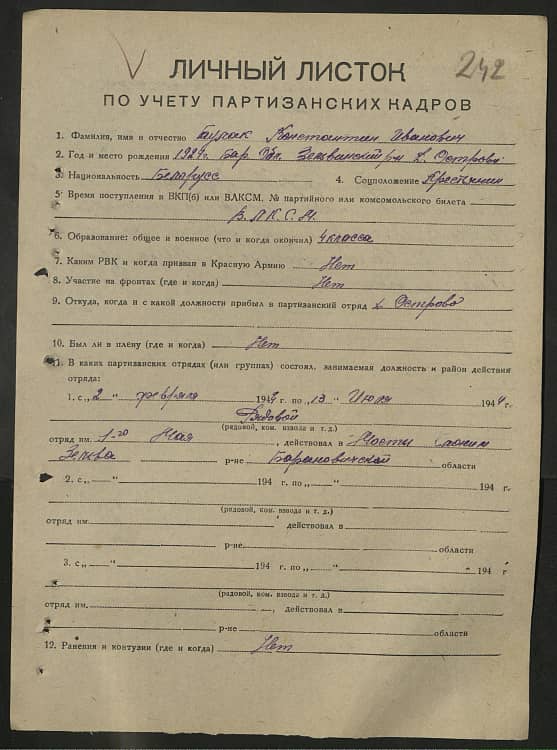 242
ЛИЧНЫЙ ЛИСТОК
ПО УЧЕТУ ПАРТИЗАНСКИХ КАДРОВ
1. Фамилия, имя и отчество Константин Иванович
2. Год и место рождения 1924г. Бар. Обл. Зельванский р-н д. Острово
3. Национальность Белорусс 4. Соцположение Крестьянин
5. Время поступления в ВКП(б) или ВЛКСМ, № партийного или комсомольского билета
В. Л.К.С.М.
6. Образование: общее и военное (что и когда окончил) 4 класса
7. Каким РВК и когда призван в Красную Армию Нет
8. Участие на фронтах (где и когда) Нет
9. Откуда, когда и с какой должности прибыл в партизанский отряд д. Острово
10. Был ли в плену (где и когда) Нет
11. В каких партизанских отрядах (или группах) состоял, занимаемая должность и район действия
отряда:
1. с „2“ февраля 1944 г. по „13“ Июля 1944 г.
Рядовой
(рядовой, ком. взвода и т. д.)
отряд им. 1-го Мая, действовал в Мосты Слоним
Зельва р-не Барановичской области
2. с „ “ 194 г. по „ “ 194 г.
(рядовой, ком. взвода и т. д.)
отряд им. действовал в
р-не области
3. с „ “ 194 г. по „ “ 194 г
(рядовой, ком. взвода и т. д.)
отряд им. , действовал в
р-не области
12. Ранения и контузии (где и когда) Нет